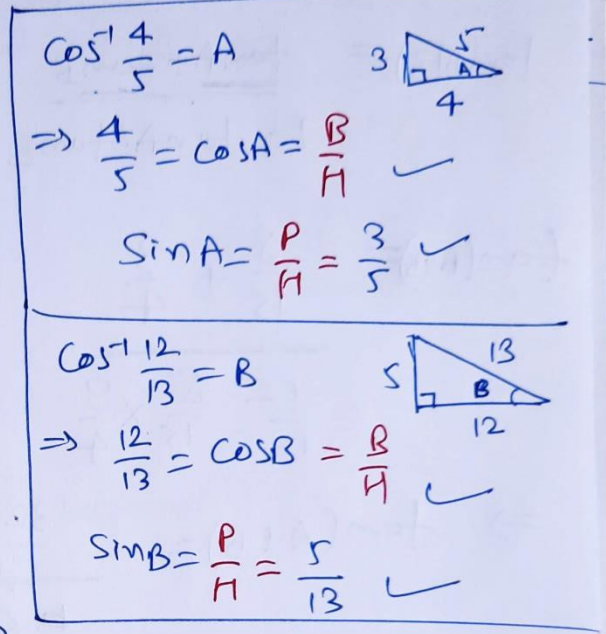 Cos⁻¹ 4/5 = A
3 5 A 4
⇒ 4/5 = cosA = B/H ✓
SinA = P/H = 3/5 ✓
Cos⁻¹ 12/13 = B
5 13 B 12
⇒ 12/13 = COSB = B/H ✓
SinB = P/H = 5/13 ✓